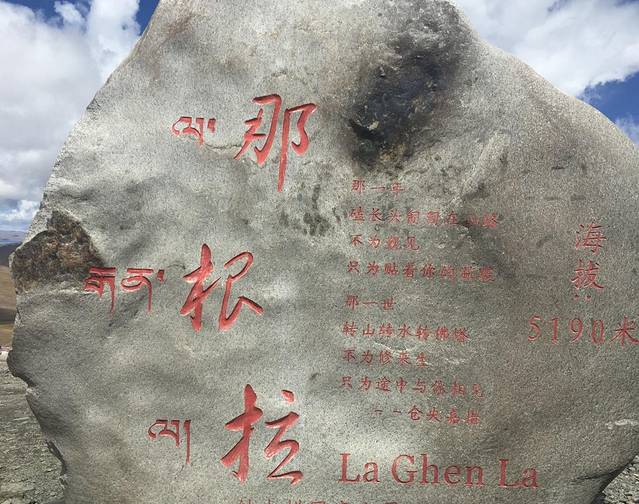 那
那一年
磕长头匍匐在山路
不为觐见
只为贴着你的温暖
海拔
5190米
根
那一世
转山转水转佛塔
不为修来生
只为途中与你相见
--仓央嘉措
ལ།
拉
La Ghen La